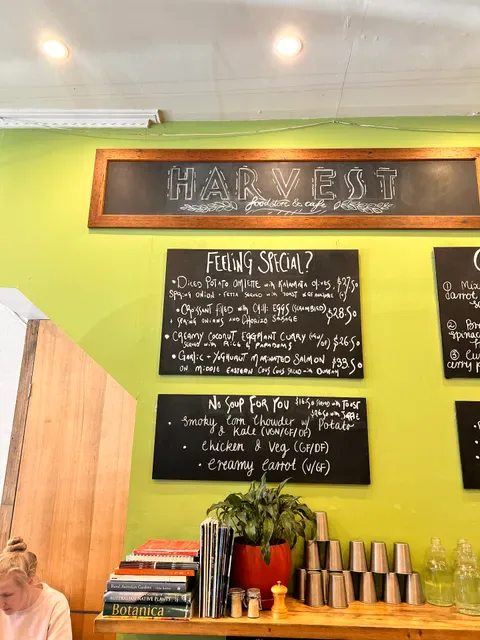 HARVEST
foodstore & cafe
FEELING SPECIAL?
• DICED POTATO OMLETTE with KALAMATA OLIVES, $27.50
SPRING ONION + FETTA SERVED with TOAST
• CROISSANT FILLED WITH CHILLI EGGS (SCRAMBLED) $28.50
+ SPRING ONIONS AND CHORIZO SAUSAGE
• CREAMY COCONUT EGGPLANT CURRY $26.50
SERVED WITH RICE & PAPADAMS
• GARLIC - YOGHURT MARINATED SALMON $33.50
ON MIDDLE EASTERN COUS COUS SALAD
NO SOUP FOR YOU $16.50 SERVED with TOAST
• Smoky Corn Chowder w/ Potato
& Kale (VGN/GF/DF)
• Chicken & Veg (GF/DF)
• Creamy Carrot (V/GF)
① Mix
carrot
②
spinac
③
curry p
AUSTRALIAN NATIVE PLANTS
Botanica